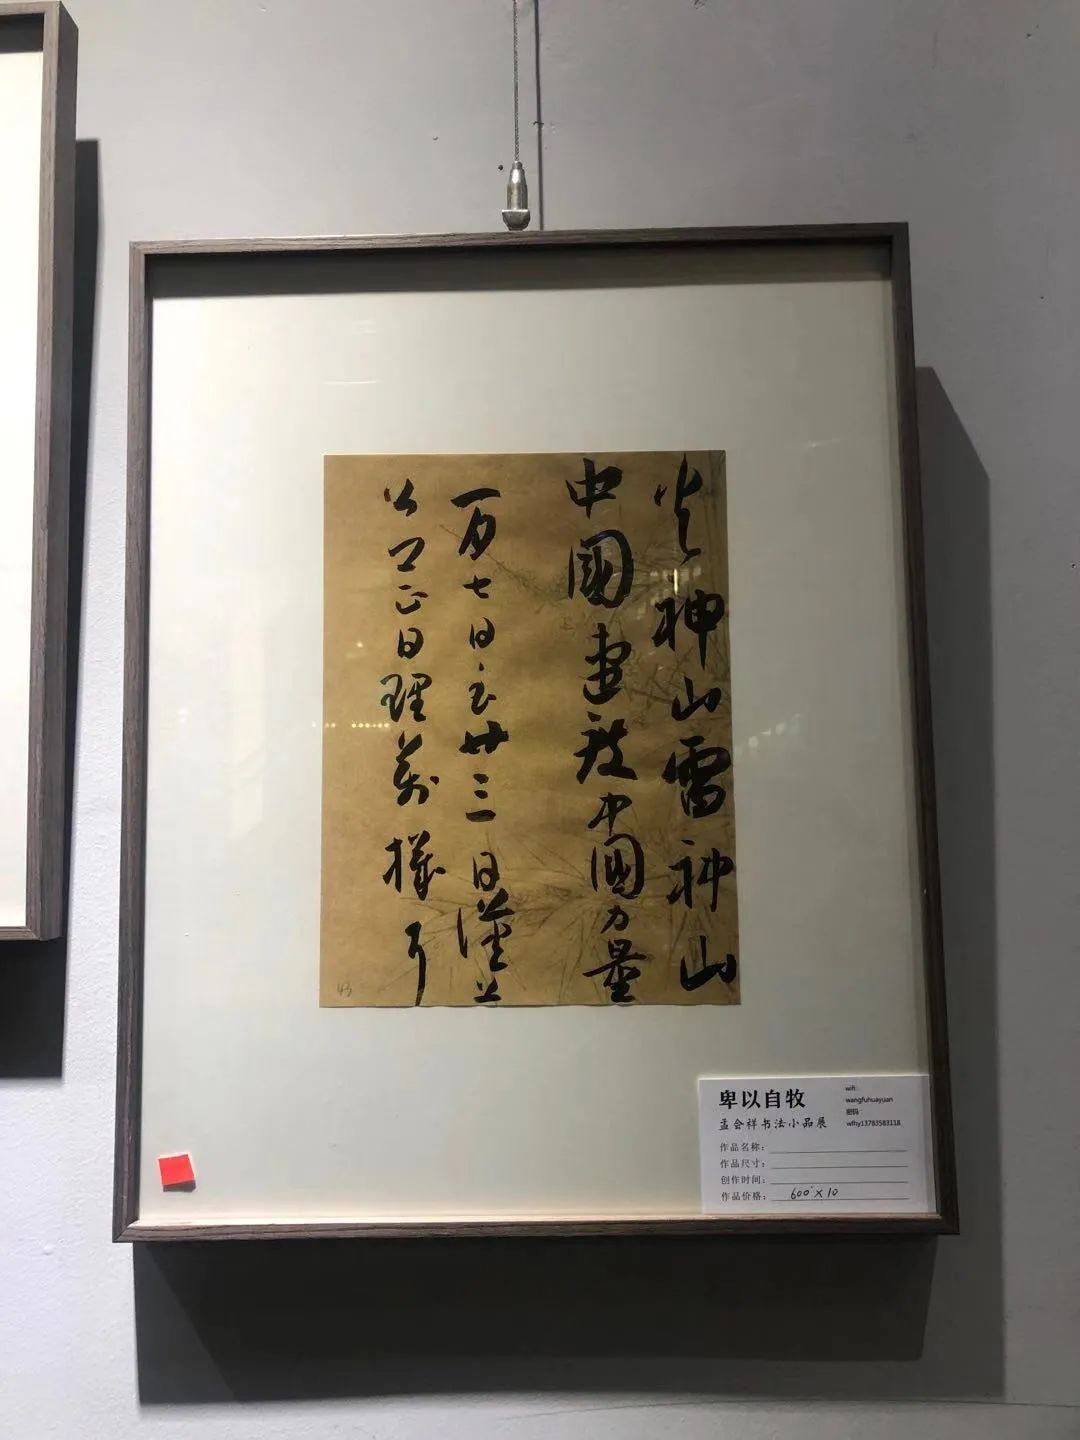 火神山雷神山
中國中國力量
一月七日至廿三日
日理萬
43
卑以自牧
孟会祥书法小品展
wifi:
wangfuhuayuan
密码:
wfhy13783583118
作品名称:
作品尺寸:
创作时间:
作品价格: 600×10